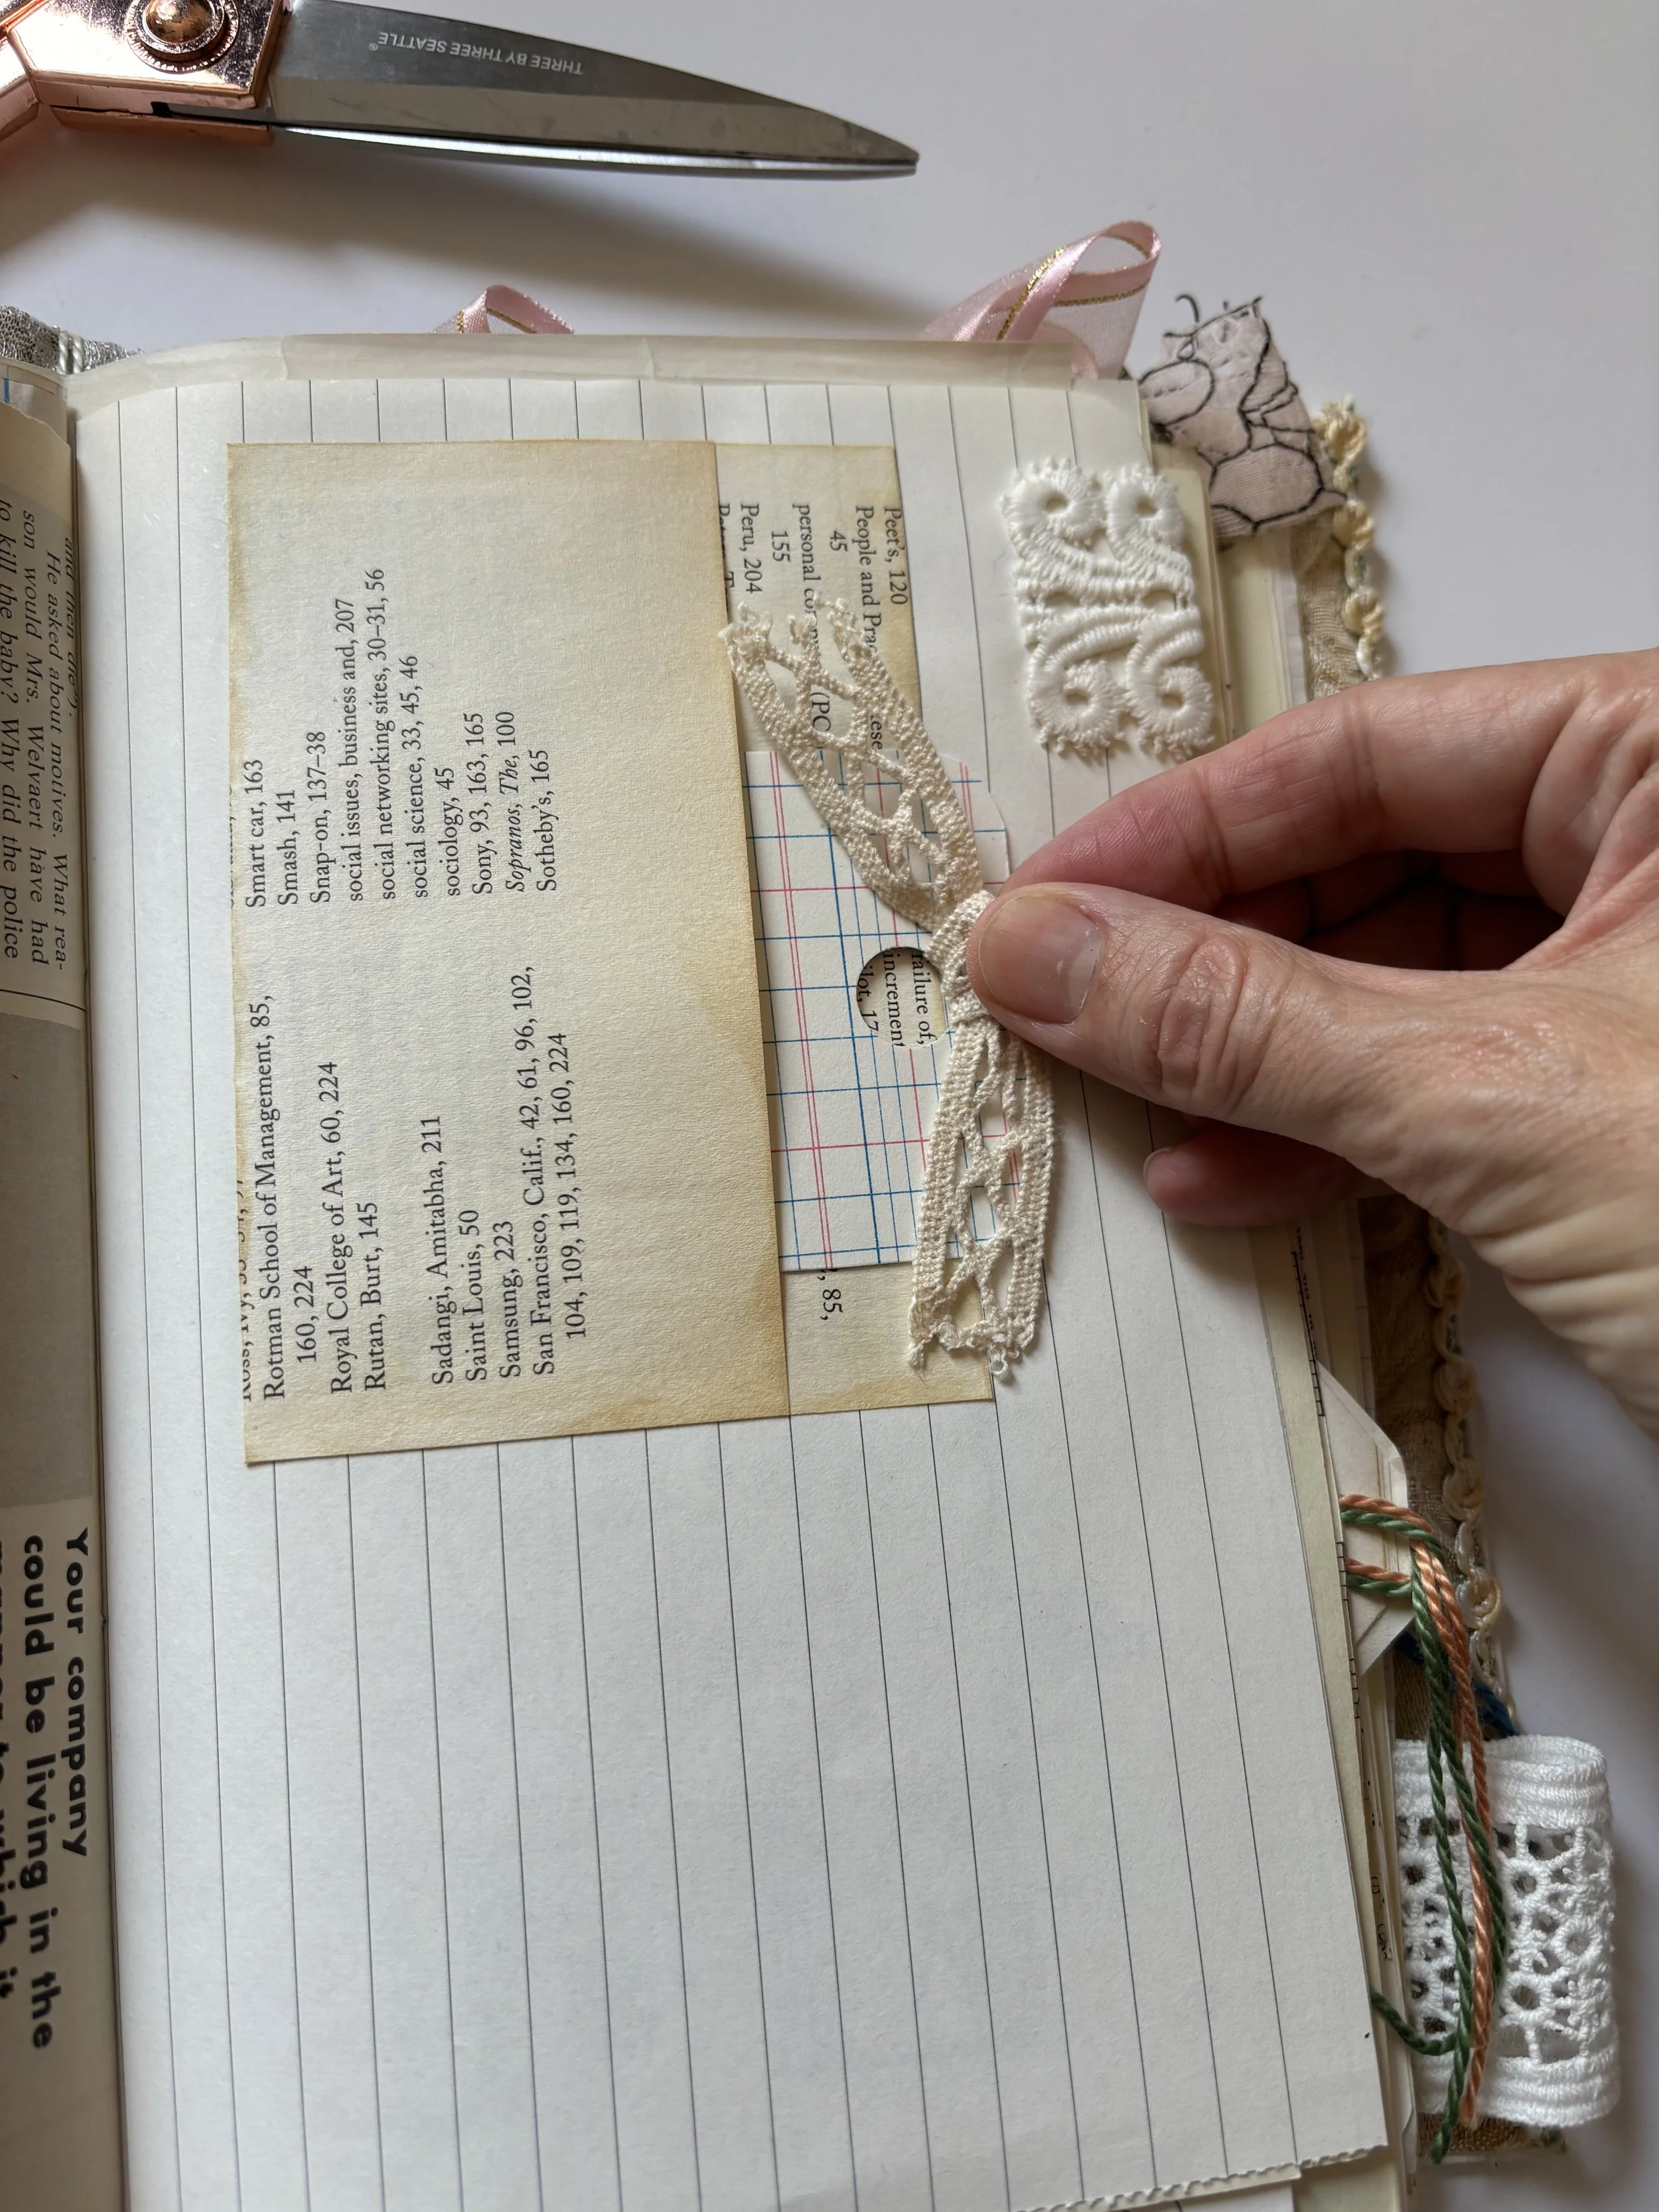 THREE BY THREE SEATTLE®
Rotman School of Management, 85,
160, 224
Royal College of Art, 60, 224
Rutan, Burt, 145
Sadangi, Amitabha, 211
Saint Louis, 50
Samsung, 223
San Francisco, Calif., 42, 61, 96, 102,
104, 109, 119, 134, 160, 224
Smart car, 163
Smash, 141
Snap-on, 137–38
social issues, business and, 207
social networking sites, 30–31, 56
social science, 33, 45, 46
sociology, 45
Sony, 93, 163, 165
Sopranos, The, 100
Sotheby's, 165
Peet's, 120
People and
45
personal
155
Peru, 204
(PC
failure of,
increment
ilot, 17
, 85,
and then
He asked about motives. What rea-
son would Mrs. Welvaert have had
to kill the baby? Why did the police
Your company
could be living in the